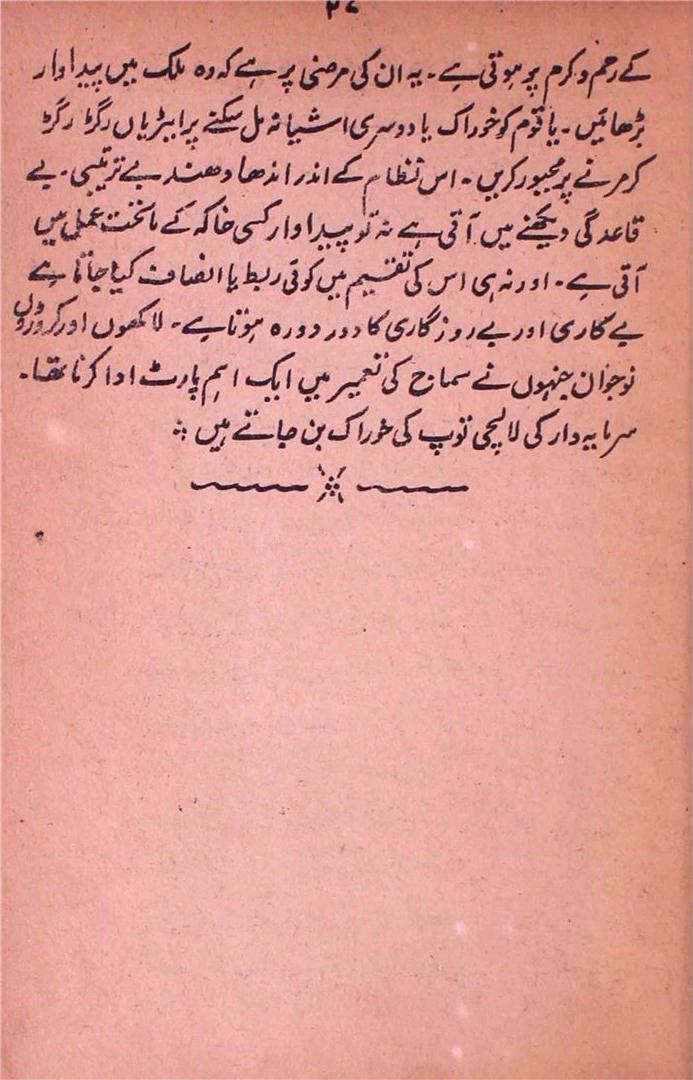 ۲۷
کے رحم و کرم پر ہوتی ہے۔ یہ ان کی مرضی پر ہے کہ وہ ملک میں پیداوار
بڑھائیں۔ یا قوم کو خوراک یا دوسری اشیا نہ مل سکنے پر ایڑیاں رگڑ رگڑ
کر مرنے پر مجبور کریں۔ اس نظام کے اندر اندھا دھند بے ترتیبی۔ بے
قاعدگی دیکھنے میں آتی ہے نہ تو پیداوار کسی خاکہ کے ماتحت عمل میں
آتی ہے۔ اور نہ ہی اس کی تقسیم میں کوئی ربط یا انصاف کیا جاتا ہے
بے کاری اور بے روزگاری کا دور دورہ ہوتا ہے۔ لاکھوں اور کروڑوں
نوجوان جنہوں نے سماج کی تعمیر میں ایک اہم پارٹ ادا کرنا تھا۔
سرمایہ دار کی لالچی توپ کی خوراک بن جاتے ہیں